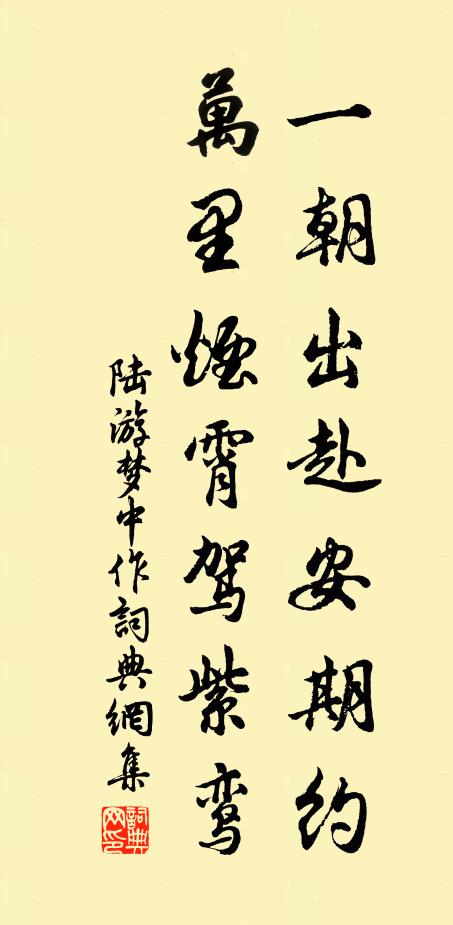 一朝出赴安期约
萬里煙霄驾紫鸾
陆游梦中作詞典網集
詞典网印